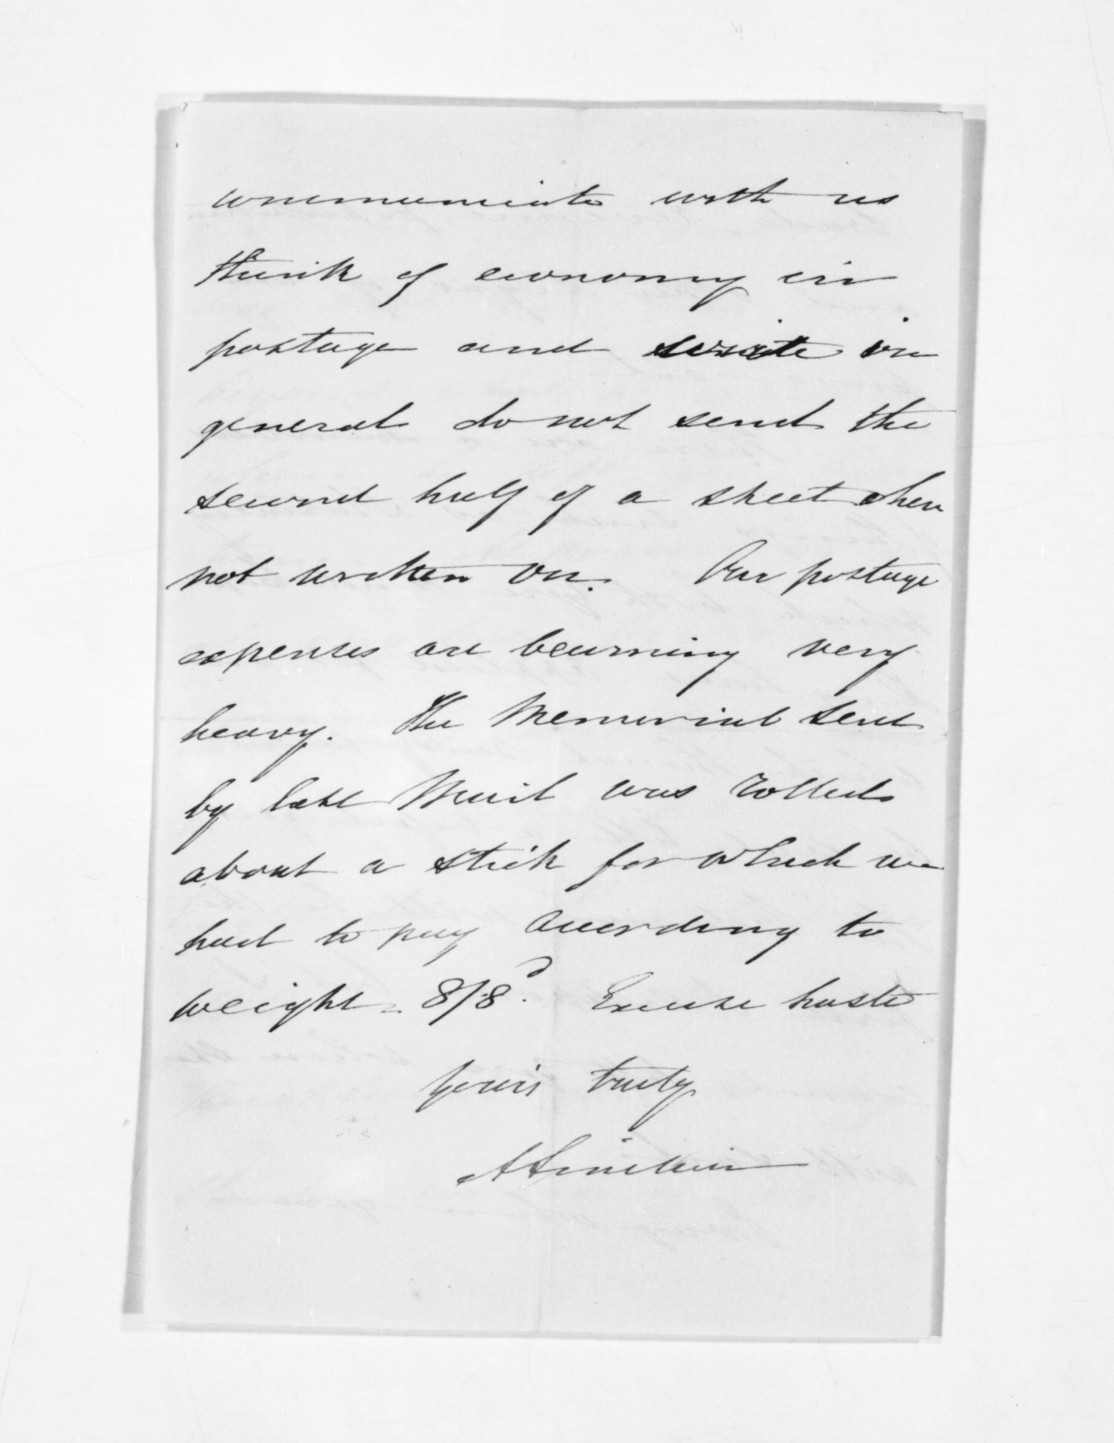 communicate with us
think of economy in
postage and write in
general do not send the
second half of a sheet when
not written on. Our postage
expenses are becoming very
heavy. The Memorial sent
by last Mail was rolled
about a stick for which we
had to pay according to
weight = 8/8d. Excuse haste
yours truly
A Sinclair